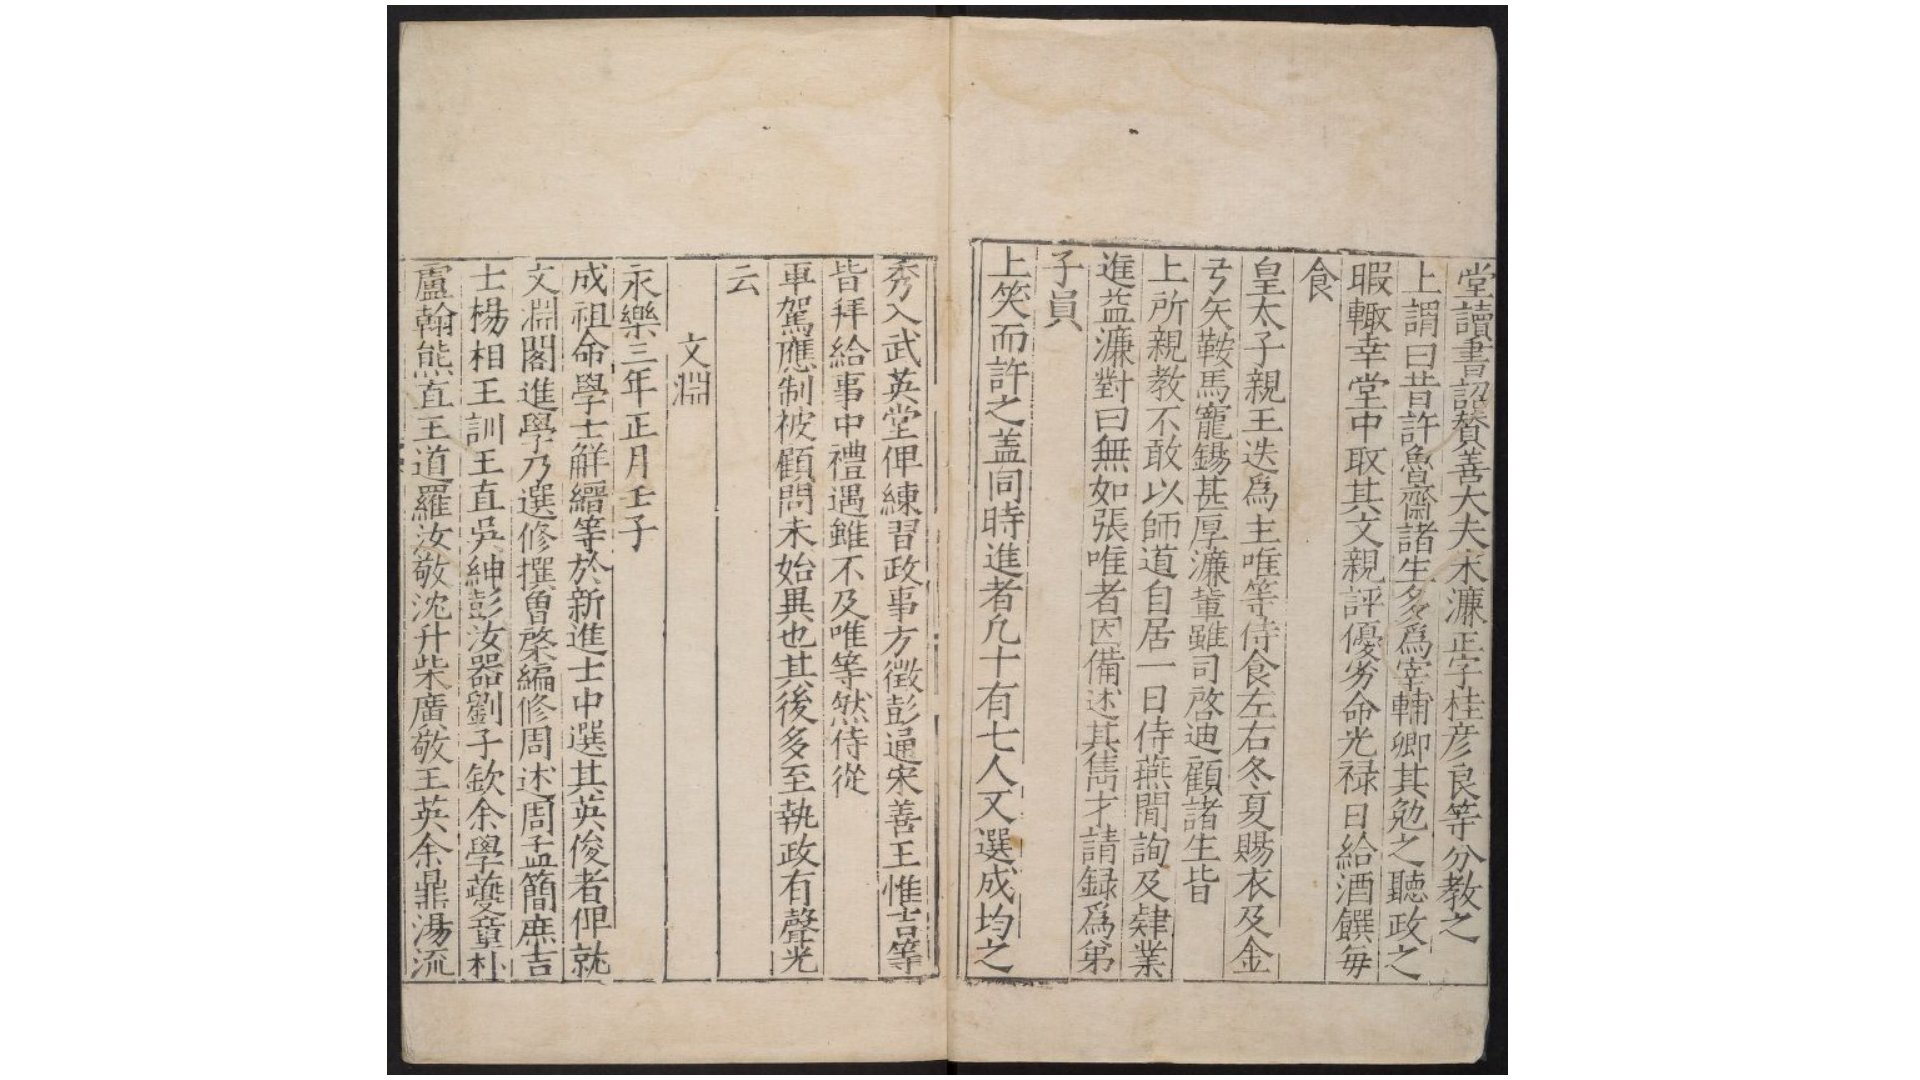 堂讀書詔賛善大夫宋濂正字桂彦良等分教之
上謂曰昔許魯齋諸生多爲宰輔卿其勉之聽政之
暇輙幸堂中取其文親評優劣命光禄日給酒饌每
食
皇太子親王迭爲主唯等侍食左右冬夏賜衣及金
弓矢鞍馬寵錫甚厚濂輩雖司啓迪顧諸生皆
上所親教不敢以師道自居一日侍燕閒詢及肄業
進益濂對曰無如張唯者因備述其雋才請録爲弟
子員
上笑而許之盖同時進者凡十有七人又選成均之
秀入武英堂俾練習政事方徵彭通宋善王惟吉等
皆拜給事中禮遇雖不及唯等然侍從
車駕應制被顧問未始異也其後多至執政有聲光
云
文淵
永樂三年正月壬子
成祖命學士觧縉等於新進士中選其英俊者俾就
文淵閣進學乃選修撰曾棨編修周述周孟簡庶吉
士楊相王訓王直吳紳彭汝器劉子欽余學夔章朴
盧翰熊直王道羅汝敬沈升柴廣敬王英余鼎湯流